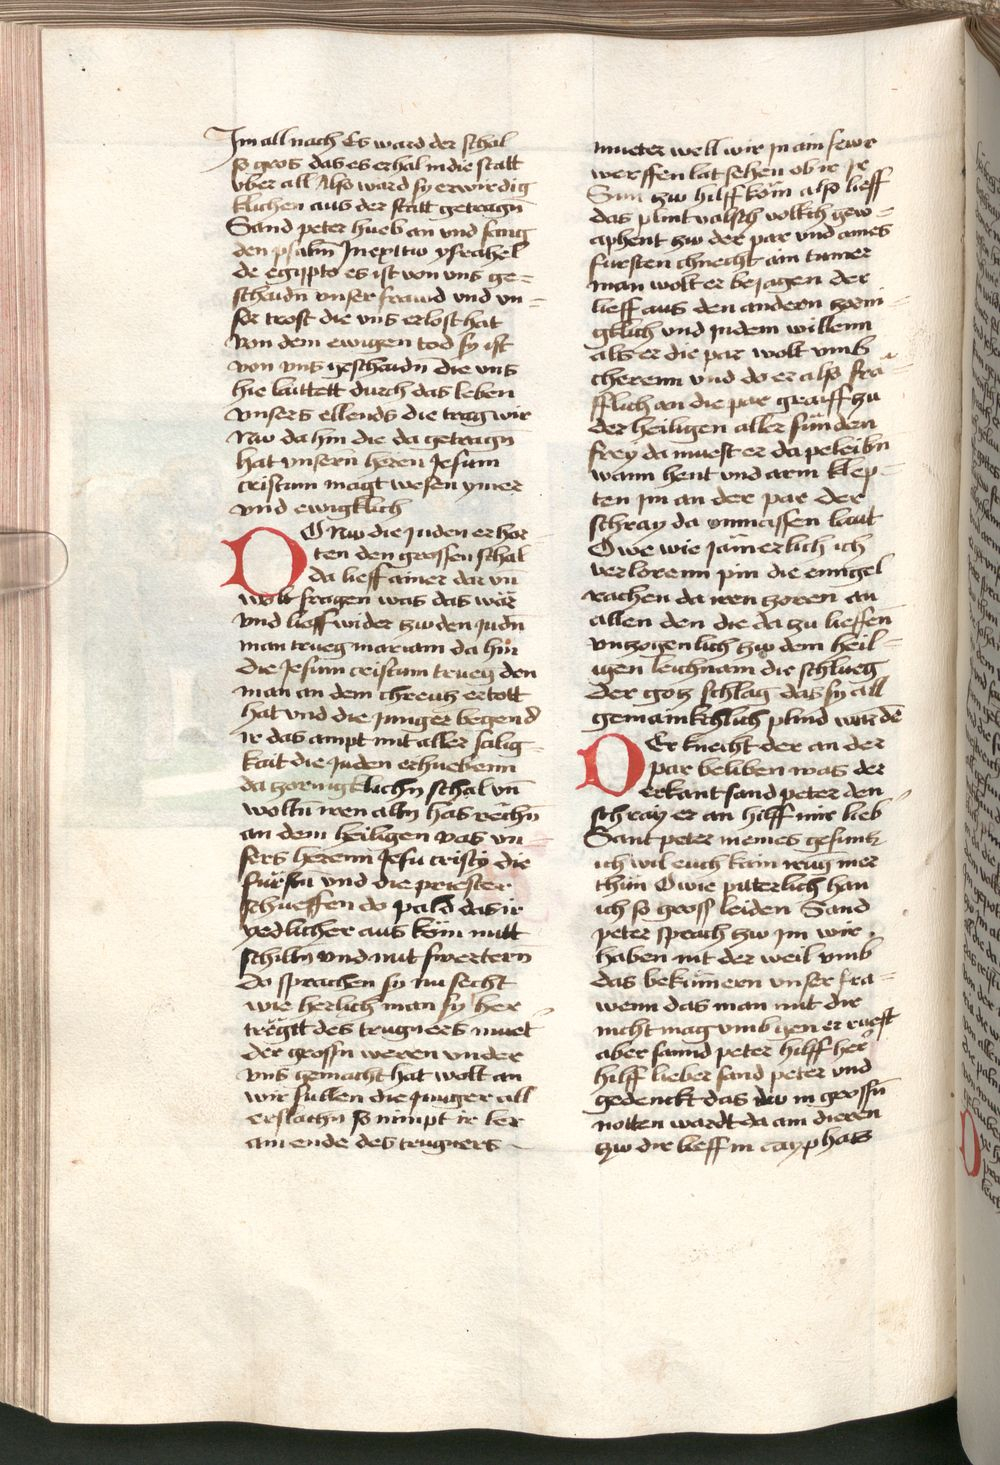 Jm all nach Es ward der schal
so gros das es erhal in die statt
vber all Also ward sy erwirdig
klichen aus der statt getragn̄
Sand peter hueb an vnd sang
den psalm̄ Jn exitu ysrahel
de egipto es ist von vns ge=
schaidn̄ vnser frawd vnd vn=
ser trost die vns erlost hat
von dem ewigen tod sy ist
von vns geschaidn̄ die vns
hie laittett durch das leben
vnsers ellends die trag wir
Nw da hin die da getragn̄
hat vnsern̄ heren Jesum
cristum magt wesen ymer
vnd ewigklich
DO Nw die Juden er hor=
ten den grossen schal
da lieff ainer dar vn̄
wolt fragen was das wär
vnd lieff wider zw den Judn̄
man trueg mariam da hin
die Jesum cristum trueg den
man an dem chreutz ertott
hat vnd die Junger begend
ir das ampt mit aller sälig=
kait die Juden erhuebenn
da zornigklichn̄ schal vn̄
woltn̄ iren altn̄ has rechn̄
an dem heiligen vas vn=
sers herenn Jesu cristy die
fürstn̄ vnd die priester
schueffen do pald das ir
yedlicher aus köm mitt
schiltn̄ vnd mit swertern̄
Do sprachen sy nu secht
wie herlich man sy her
tregtt des trugners muet'
der grossn̄ werren vnder
vns gemacht hat wolt an
wir sullen die Junger all
erslachn̄ so nimpt ir ler
ain ende des trugners
mueter well wir in ain fewr
werffen lat sehen ob ir Jr
Sun zw hilff köm also lieff
das plint valsch volkch gew=
aphent zw der par vnd aines
fursten chnecht ain tumer
man wolt er bejagen der
lieff aus den andern zorni=
gklich vnd in dem willenn
als er die par wolt vmb
cherenn vnd do er also frä=
fflich an die par graiff zu
der heiligen aller sünden
frey da muest er da peleibn̄
wann hent vnd arm klep=
ten Jm an der par der
schray da vnmassen laut
Owe wie Jämerlich ich
verlorenn pin die enngel
rachen da iren zoren an
allen den die da zu lieffen
vnzogenlich zw dem heil=
igen leichnam die schlueg
der gotz schlag das sy all
gemainkchlich plind wardē
DEr knecht der an der
par beliben was der
erkant sand peter den
schray er an hilff mir lieb
Sant peter meines gesuntz
ich wil euch kain mer
thün O wie pitterlich han
ich so gross leiden Sand
peter sprach zw Jm wir
haben nit der weil vmb
das bekümern vnser fra=
wenn das man mit dir
nicht mag vmb gen er rueft
aber sannd peter hilff her'
hilff lieber sand peter vnd
gedenckt das dw in grossn̄
notten wardt da ain dieren
zw dir lieff in cayphas